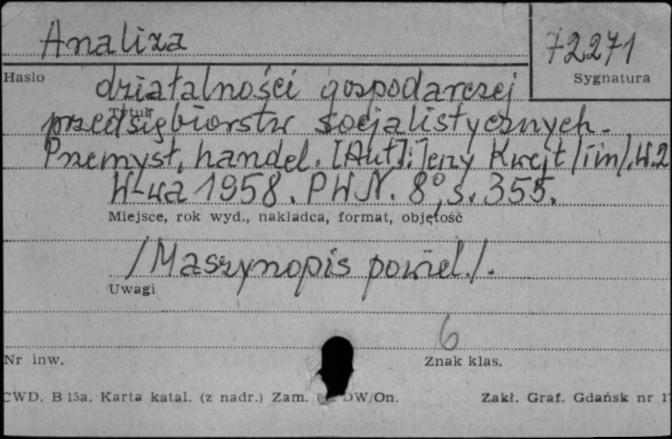 Analiza
72271
Hasło
Sygnatura
działalności gospodarczej
Tytuł
przedsiębiorstw socjalistycznych.
Przemysł, handel. [Aut]: Jerzy Kwejt /i in/. W.2
W-wa 1958. PWN. 8°, s. 355.
Miejsce, rok wyd., nakładca, format, objętość
/Maszynopis powiel./.
Uwagi
6
Nr inw.
Znak klas.
CWD. B 15a. Karta katal. (z nadr.) Zam. DW/On.
Zakł. Graf. Gdańsk nr 17